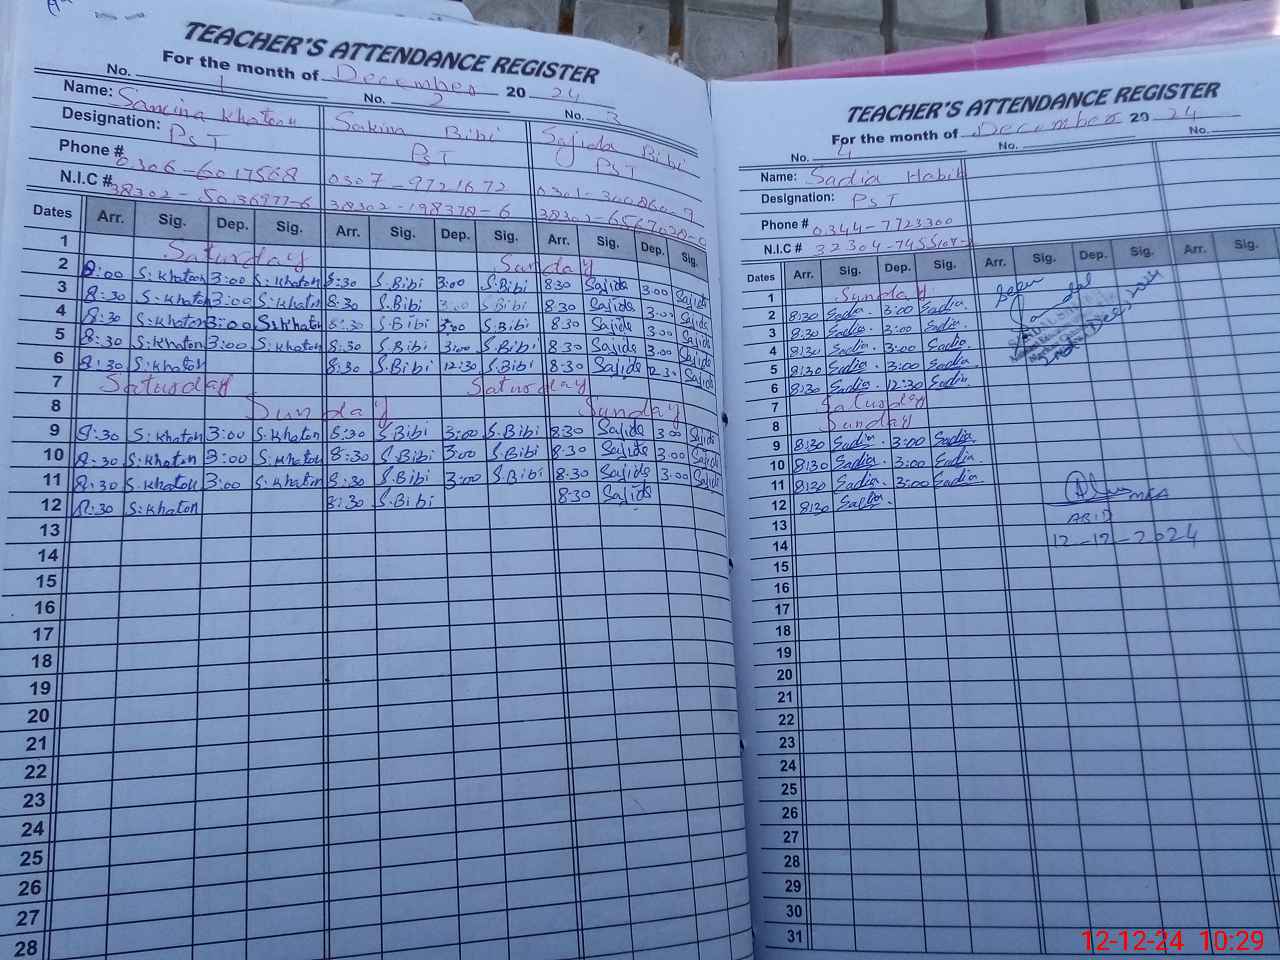 TEACHER'S ATTENDANCE REGISTER
For the month of December 2024
No. 1 No. 2 No. 3
Name: Samina Khatoon Sakina Bibi Sajida Bibi
Designation: PST PST PST
Phone # 0306-6017568 0307-9721672
N.I.C #
Dates Arr. Sig. Dep. Sig. Arr. Sig. Dep. Sig. Arr. Sig. Dep. Sig.
1 Saturday Sunday
2 8:00 S.Khaton 3:00 S.Khaton 8:30 S.Bibi 3:00 S.Bibi 8:30 Sajida 3:00 Sajida
3 8:30 S.Khaton 3:00 S.Khaton 8:30 S.Bibi 3:00 S.Bibi 8:30 Sajida 3:00 Sajida
4 8:30 S.Khaton 3:00 S.Khaton 8:30 S.Bibi 3:00 S.Bibi 8:30 Sajida 3:00 Sajida
5 8:30 S.Khaton 3:00 S.Khaton 8:30 S.Bibi 3:00 S.Bibi 8:30 Sajida 3:00 Sajida
6 8:30 S.Khaton 8:30 S.Bibi 12:30 S.Bibi 8:30 Sajida 12:30 Sajida
7 Saturday Saturday
8 Sunday Sunday
9 8:30 S.Khaton 3:00 S.Khaton 8:30 S.Bibi 3:00 S.Bibi 8:30 Sajida 3:00 Sajida
10 8:30 S.Khaton 3:00 S.Khaton 8:30 S.Bibi 3:00 S.Bibi 8:30 Sajida 3:00 Sajida
11 8:30 S.Khaton 3:00 S.Khaton 8:30 S.Bibi 3:00 S.Bibi 8:30 Sajida 3:00 Sajida
12 8:30 S.Khaton 8:30 S.Bibi 8:30 Sajida
13
14
15
16
17
18
19
20
21
22
23
24
25
26
27
28
TEACHER'S ATTENDANCE REGISTER
For the month of December 2024
No. 4 No. No.
Name: Sadia Habib
Designation: PST
Phone # 0344-7723300
N.I.C #
Dates Arr. Sig. Dep. Sig. Arr. Sig. Dep. Sig. Arr. Sig.
1 Sunday
2 8:30 Sadia. 3:00 Sadia.
3 8:30 Sadia. 3:00 Sadia.
4 8:30 Sadia. 3:00 Sadia.
5 8:30 Sadia. 3:00 Sadia.
6 8:30 Sadia. 12:30 Sadia.
7 Saturday
8 Sunday
9 8:30 Sadia. 3:00 Sadia.
10 8:30 Sadia. 3:00 Sadia.
11 8:30 Sadia. 3:00 Sadia.
12 8:30 Sadia.
MEA
ABID
12-12-2024
13
14
15
16
17
18
19
20
21
22
23
24
25
26
27
28
29
30
31
12-12-24 10:29